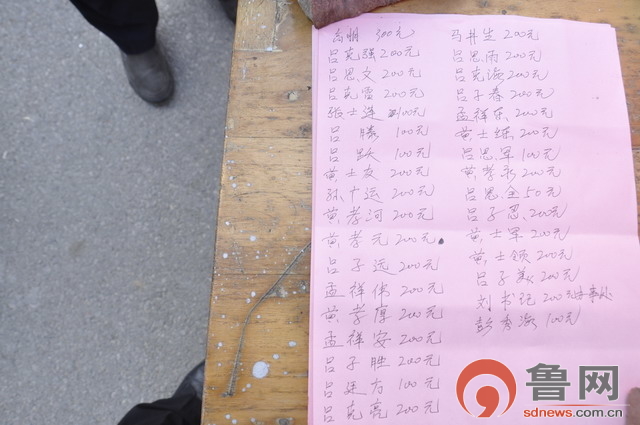 高明 300元
吕克强200元
吕思文 200元
吕克雷 200元
张士连 100元
吕腾 100元
吕跃 100元
黄士友 200元
孙广运 200元
黄孝河 200元
黄孝元 200元
吕子远 200元
孟祥伟 200元
黄孝厚 200元
孟祥安 200元
吕子胜 200元
吕廷方 100元
吕克亮 200元
马井生 200元
吕思雨 200元
吕克海 200元
吕子春 200元
孟祥乐 200元
黄士练 200元
吕思军 100元
黄孝永 200元
吕思全 50元
吕子忍 200元
黄士军 200元
黄士领 200元
吕子美 200元
刘书记 200元
彭秀海 100元
鲁网
sdnews.com.cn